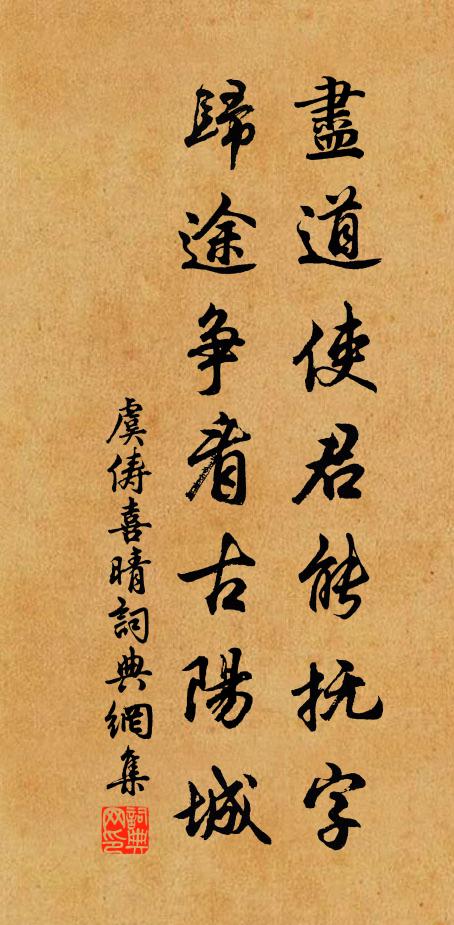 盡道使君能抚字
歸途争看古陽城
虞俦喜晴詞典網集
詞典网印